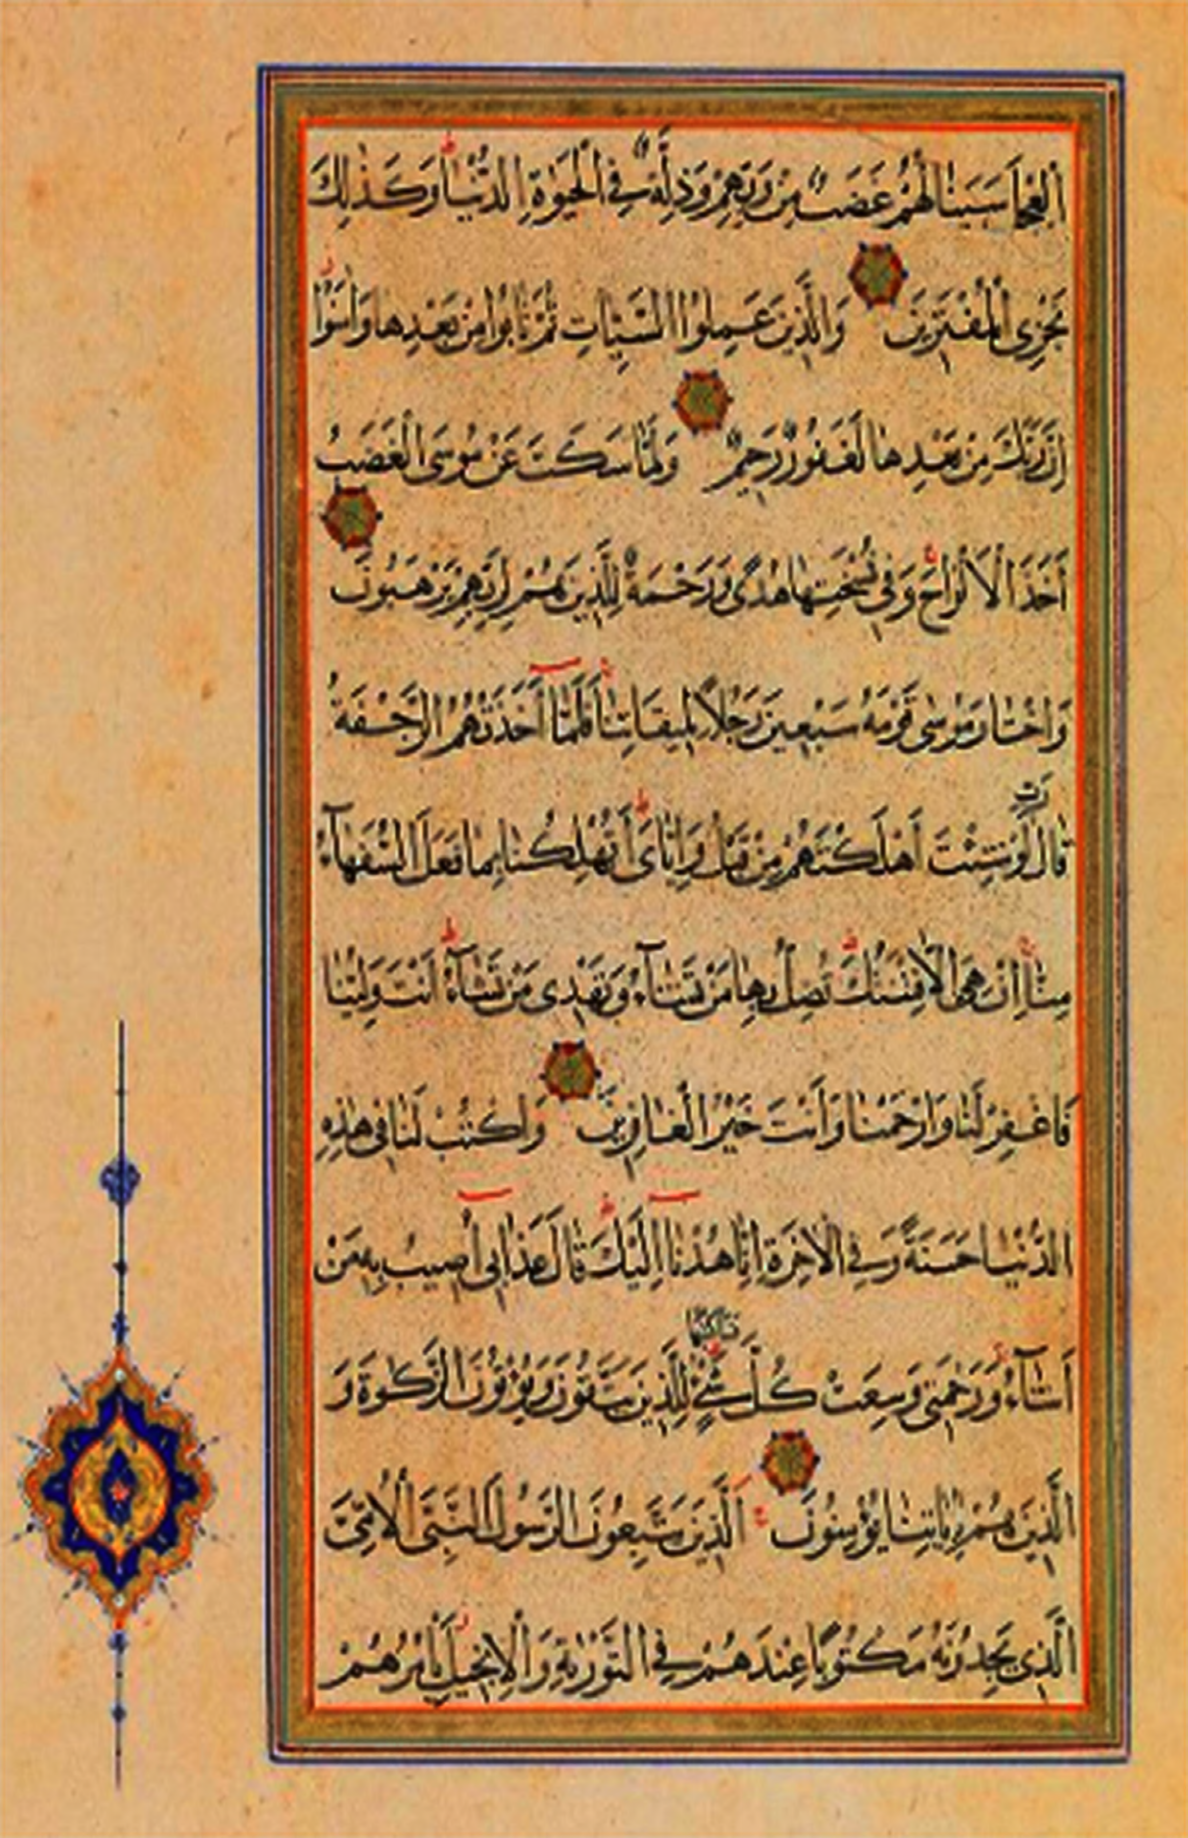 الْعِجْلَ سَيَنَالُهُمْ غَضَبٌ مِنْ رَبِّهِمْ وَذِلَّةٌ فِي الْحَيٰوةِ الدُّنْيَا ط وَكَذٰلِكَ
نَجْزِي الْمُفْتَرِينَ وَالَّذِينَ عَمِلُوا السَّيِّئَاتِ ثُمَّ تَابُوا مِنْ بَعْدِهَا وَاٰمَنُوا ز
اِنَّ رَبَّكَ مِنْ بَعْدِهَا لَغَفُورٌ رَحِيمٌ وَلَمَّا سَكَتَ عَنْ مُوسَى الْغَضَبُ
اَخَذَ الْاَلْوَاحَ وَفِي نُسْخَتِهَا هُدًى وَرَحْمَةٌ لِلَّذِينَ هُمْ لِرَبِّهِمْ يَرْهَبُونَ
وَاخْتَارَ مُوسٰى قَوْمَهُ سَبْعِينَ رَجُلًا لِمِيقَاتِنَا فَلَمَّا اَخَذَتْهُمُ الرَّجْفَةُ
قَالَ رَبِّ لَوْ شِئْتَ اَهْلَكْتَهُمْ مِنْ قَبْلُ وَاِيَّايَ ط اَتُهْلِكُنَا بِمَا فَعَلَ السُّفَهَآءُ
مِنَّا اِنْ هِيَ اِلَّا فِتْنَتُكَ تُضِلُّ بِهَا مَنْ تَشَآءُ وَتَهْدِي مَنْ تَشَآءُ ط اَنْتَ وَلِيُّنَا
فَاغْفِرْ لَنَا وَارْحَمْنَا وَاَنْتَ خَيْرُ الْغَافِرِينَ وَاكْتُبْ لَنَا فِي هٰذِهِ
الدُّنْيَا حَسَنَةً وَفِي الْاٰخِرَةِ اِنَّا هُدْنَا اِلَيْكَ ط قَالَ عَذَابِي اُصِيبُ بِهِ مَنْ
اَشَآءُ وَرَحْمَتِي وَسِعَتْ كُلَّ شَيْءٍ فَسَاَكْتُبُهَا لِلَّذِينَ يَتَّقُونَ وَيُؤْتُونَ الزَّكٰوةَ وَ
الَّذِينَ هُمْ بِاٰيَاتِنَا يُؤْمِنُونَ اَلَّذِينَ يَتَّبِعُونَ الرَّسُولَ النَّبِيَّ الْاُمِّيَّ
الَّذِي يَجِدُونَهُ مَكْتُوبًا عِنْدَهُمْ فِي التَّوْرٰيةِ وَالْاِنْجِيلِ يَاْمُرُهُمْ